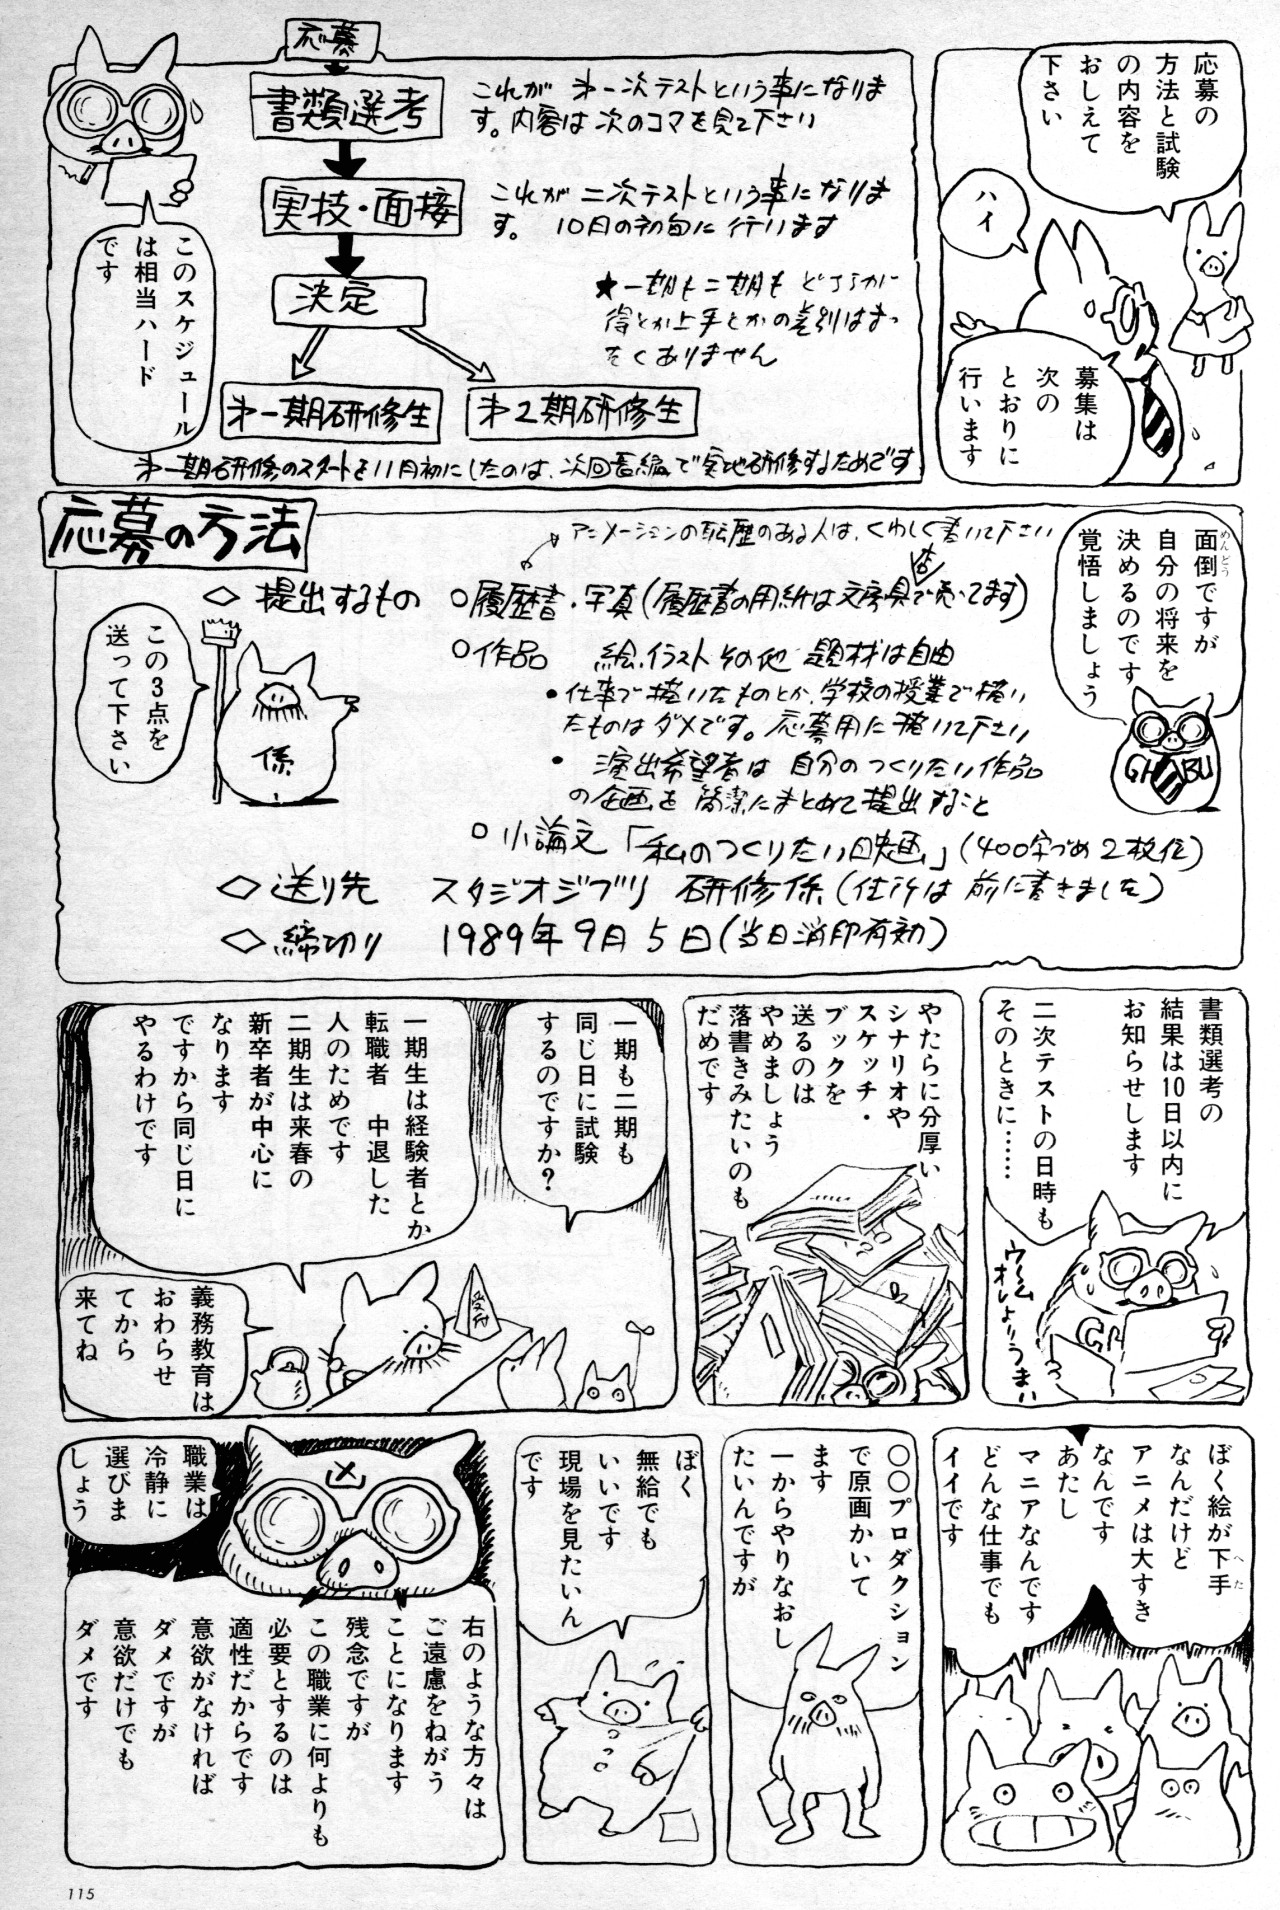 応募の
方法と試験
の内容を
おしえて
下さい
ハイ
募集は
次の
とおりに
行います
応募
書類選考
これが 才一次テストという事になりま
す。内容は次のコマを見て下さい
実技・面接
これが 二次テストという事になりま
す。 10月の初旬に行います
決定
★一期も二期も どちらが
得とか上手とかの差別はまっ
たくありません
才一期研修生
才2期研修生
才一期研修のスタートを11月初にしたのは、次回長編で実地研修するためです
このスケジュール
は相当ハード
です
面倒ですが
めんどう
自分の将来を
決めるのです
覚悟しましょう
GHIBU
応募の方法
アニメーションの転歴のある人は、くわしく書いて下さい
◇ 提出するもの ○履歴書・写真(履歴書の用紙は文房具店で売ってます)
○作品 絵、イラスト その他 題材は自由
・仕事で描いたものとか、学校の授業で描い
たものはダメです。応募用に描いて下さい
・ 演出希望者は 自分のつくりたい作品
の企画を簡潔にまとめて提出すること
○ 小論文「私のつくりたい映画」(400字づめ2枚位)
◇ 送り先 スタジオジブリ 研修係(住所は前に書きました)
◇ 締切り 1989年9月5日(当日消印有効)
この3点を
送って下さい
係
書類選考の
結果は10日以内に
お知らせします
二次テストの日時も
そのときに……
ウーム
オレよりうまい
やたらに分厚い
シナリオや
スケッチ・
ブックを
送るのは
やめましょう
落書きみたいのも
だめです
一期も二期も
同じ日に試験
するのですか?
一期生は経験者とか
転職者 中退した
人のためです
二期生は来春の
新卒者が中心に
なります
ですから同じ日に
やるわけです
受付
義務教育は
おわらせ
てから
来てね
ぼく絵が下手
へた
なんだけど
アニメは大すき
なんです
あたし
マニアなんです
どんな仕事でも
イイです
○○プロダクション
で原画かいて
ます
一からやりなおし
たいんですが
ぼく
無給でも
いいです
現場を見たいん
です
職業は
冷静に
選びま
しょう
右のような方々は
ご遠慮をねがう
ことになります
残念ですが
この職業に何よりも
必要とするのは
適性だからです
意欲がなければ
ダメですが
意欲だけでも
ダメです
115